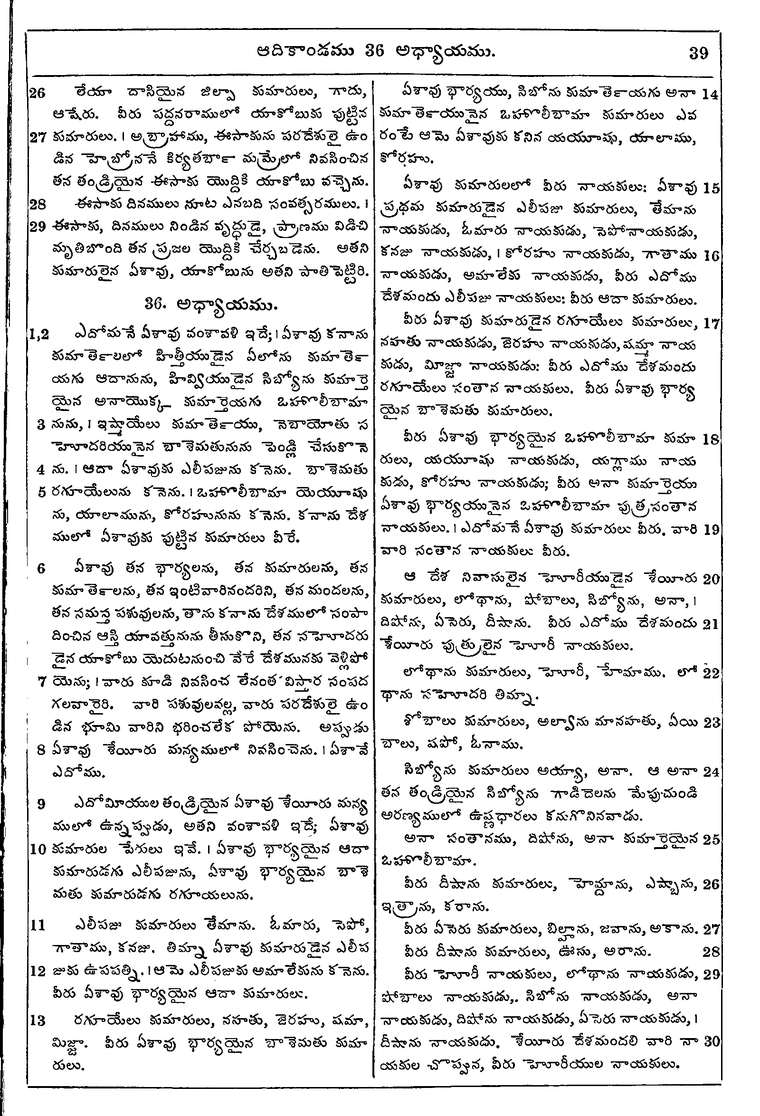 ఆదికాండము 36 అధ్యాయము. 39
26 లేయా దాసియైన జిల్పా కుమారులు, గాదు,
ఆషేరు. వీరు పద్దనరాములో యాకోబుకు పుట్టిన
27 కుమారులు. । అబ్రాహాము, ఈసాకును పరదేశులై ఉం
డిన హెబ్రోననే కిర్యతర్బా మమ్రేలో నివసించిన
తన తండ్రియైన ఈసాకు యొద్దికి యాకోబు వచ్చెను.
28 ఈసాకు దినములు నూట ఎనబది సంవత్సరములు. ।
29 ఈసాకు, దినములు నిండిన వృద్ధుడై, ప్రాణము విడిచి
మృతిబొంది తన ప్రజల యొద్దికి చేర్చబడెను. అతని
కుమారులైన ఏశావు, యాకోబును అతని పాతిపెట్టిరి.
36. అధ్యాయము.
1,2 ఎదోమనే ఏశావు వంశావళి ఇదే; । ఏశావు కనాను
కుమార్తెలలో హిత్తీయుడైన ఏలోను కుమార్తె
యగు ఆదానును, హివ్వియుడైన సిబ్యోను కుమార్తె
యైన అనాయొక్క కుమార్తెయగు ఒహొలీబామా
3 నును, । ఇష్మాయేలు కుమార్తెయు, నెబాయోతు స
హోదరియునైన బాశెమతునును పెండ్లి చేసుకొనె
4 ను. । ఆదా ఏశావుకు ఎలీపజును కనెను. బాశెమతు
5 రగూయేలును కనెను. । ఒహొలీబామా యెయూషు
ను, యాలామును, కోరహునును కనెను. కనాను దేశ
ములో ఏశావుకు పుట్టిన కుమారులు వీరే.
6 ఏశావు తన భార్యలను, తన కుమారులను, తన
కుమార్తెలను, తన ఇంటివారినందరిని, తన మందలను,
తన సమస్త పశువులను, తాను కనాను దేశములో సంపా
దించిన ఆస్తి యావత్తునును తీసుకొని, తన సహోదరు
డైన యాకోబు యెదుటనుంచి వేరే దేశమునకు వెళ్లిపో
7 యెను; । వారు కూడి నివసించ లేనంత విస్తార సంపద
గలవారైరి. వారి పశువులవల్ల, వారు పరదేశులై ఉం
డిన భూమి వారిని భరించలేక పోయెను. అప్పుడు
8 ఏశావు శేయీరు మన్యములో నివసించెను. । ఏశావే
ఎదోము.
9 ఎదోమీయుల తండ్రియైన ఏశావు శేయీరు మన్య
ములో ఉన్నప్పుడు, అతని వంశావళి ఇదే; ఏశావు
10 కుమారుల పేరులు ఇవే. । ఏశావు భార్యయైన ఆదా
కుమారుడగు ఎలీపజును, ఏశావు భార్యయైన బాశె
మతు కుమారుడగు రగూయలును.
11 ఎలీపజు కుమారులు తేమాను. ఓమారు, సెపో,
గాతాము, కనజు. తిమ్నా ఏశావు కుమారుడైన ఎలీప
12 జుకు ఉపపత్ని. । ఆమె ఎలీపజుకు అమాలేకును కనెను.
వీరు ఏశావు భార్యయైన ఆదా కుమారులు.
13 రగూయేలు కుమారులు, నహతు, జెరహు, షమా,
మిజ్జా. వీరు ఏశావు భార్యయైన బాశెమతు కుమా
రులు.
ఏశావు భార్యయు, సిబోను కుమార్తెయగు అనా 14
కుమార్తెయునైన ఒహొలీబామా కుమారులు ఎవ
రంటే ఆమె ఏశావుకు కనిన యయూషు, యాలాము,
కోర్హహు.
ఏశావు కుమారులలో వీరు నాయకులు: ఏశావు 15
ప్రథమ కుమారుడైన ఎలీపజు కుమారులు, తేమాను
నాయకుడు, ఓమారు నాయకుడు, సెపోనాయకుడు,
కనజు నాయకుడు, । కోరహు నాయకుడు, గాతాము 16
నాయకుడు, అమాలేకు నాయకుడు, వీరు ఎదోము
దేశమందు ఎలీపజు నాయకులు: వీరు ఆదా కుమారులు.
వీరు ఏశావు కుమారుడైన రగూయేలు కుమారులు, 17
నహతు నాయకుడు, జెరహు నాయకుడు, షమ్మా నాయ
కుడు, మిజ్జా నాయకుడు: వీరు ఎదోము దేశమందు
రగూయేలు సంతాన నాయకులు. వీరు ఏశావు భార్య
యైన బాశెమతు కుమారులు.
వీరు ఏశావు భార్యయైన ఒహొలీబామా కుమా 18
రులు, యయూషు నాయకుడు, యగ్లాము నాయ
కుడు, కోరహు నాయకుడు; వీరు అనా కుమార్తెయు
ఏశావు భార్యయునైన ఒహొలీబామా పుత్రసంతాన
నాయకులు. । ఎదోమనే ఏశావు కుమారులు వీరు. వారి 19
వారి సంతాన నాయకులు వీరు.
ఆ దేశ నివాసులైన హోరీయుడైన శేయీరు 20
కుమారులు, లోథాను, షోబాలు, సిబ్యోను, అనా, ।
దిషోను, ఏసెరు, దీషాను. వీరు ఎదోము దేశమందు 21
శేయీరు పుత్రులైన హోరీ నాయకులు.
లోథాను కుమారులు, హోరీ, హేమాము. లో 22
థాను సహోదరి తిమ్నా.
శోబాలు కుమారులు, అల్వాను మానహతు, ఏయి 23
బాలు, షపో, ఓనాము.
సిబ్యోను కుమారులు అయ్యా, అనా. ఆ అనా 24
తన తండ్రియైన సిబ్యోను గాడిదెలను మేపుచుండి
అరణ్యములో ఉష్ణధారలు కనుగొనినవాడు.
అనా సంతానము, దిషోను, అనా కుమార్తెయైన 25
ఒహొలీబామా.
వీరు దీషాను కుమారులు, హెమ్దాను, ఎష్బాను, 26
ఇత్రాను, కరాను.
వీరు ఏసెరు కుమారులు, బిల్హాను, జవాను, అకాను. 27
వీరు దీషాను కుమారులు, ఊసు, అరాను. 28
వీరు హోరీ నాయకులు, లోథాను నాయకుడు, 29
షోబాలు నాయకుడు,. సిబోను నాయకుడు, అనా
నాయకుడు, దిషోను నాయకుడు, ఏసెరు నాయకుడు, ।
దీషాను నాయకుడు. శేయీరు దేశమందలి వారి నా 30
యకుల చొప్పున, వీరు హోరీయుల నాయకులు.